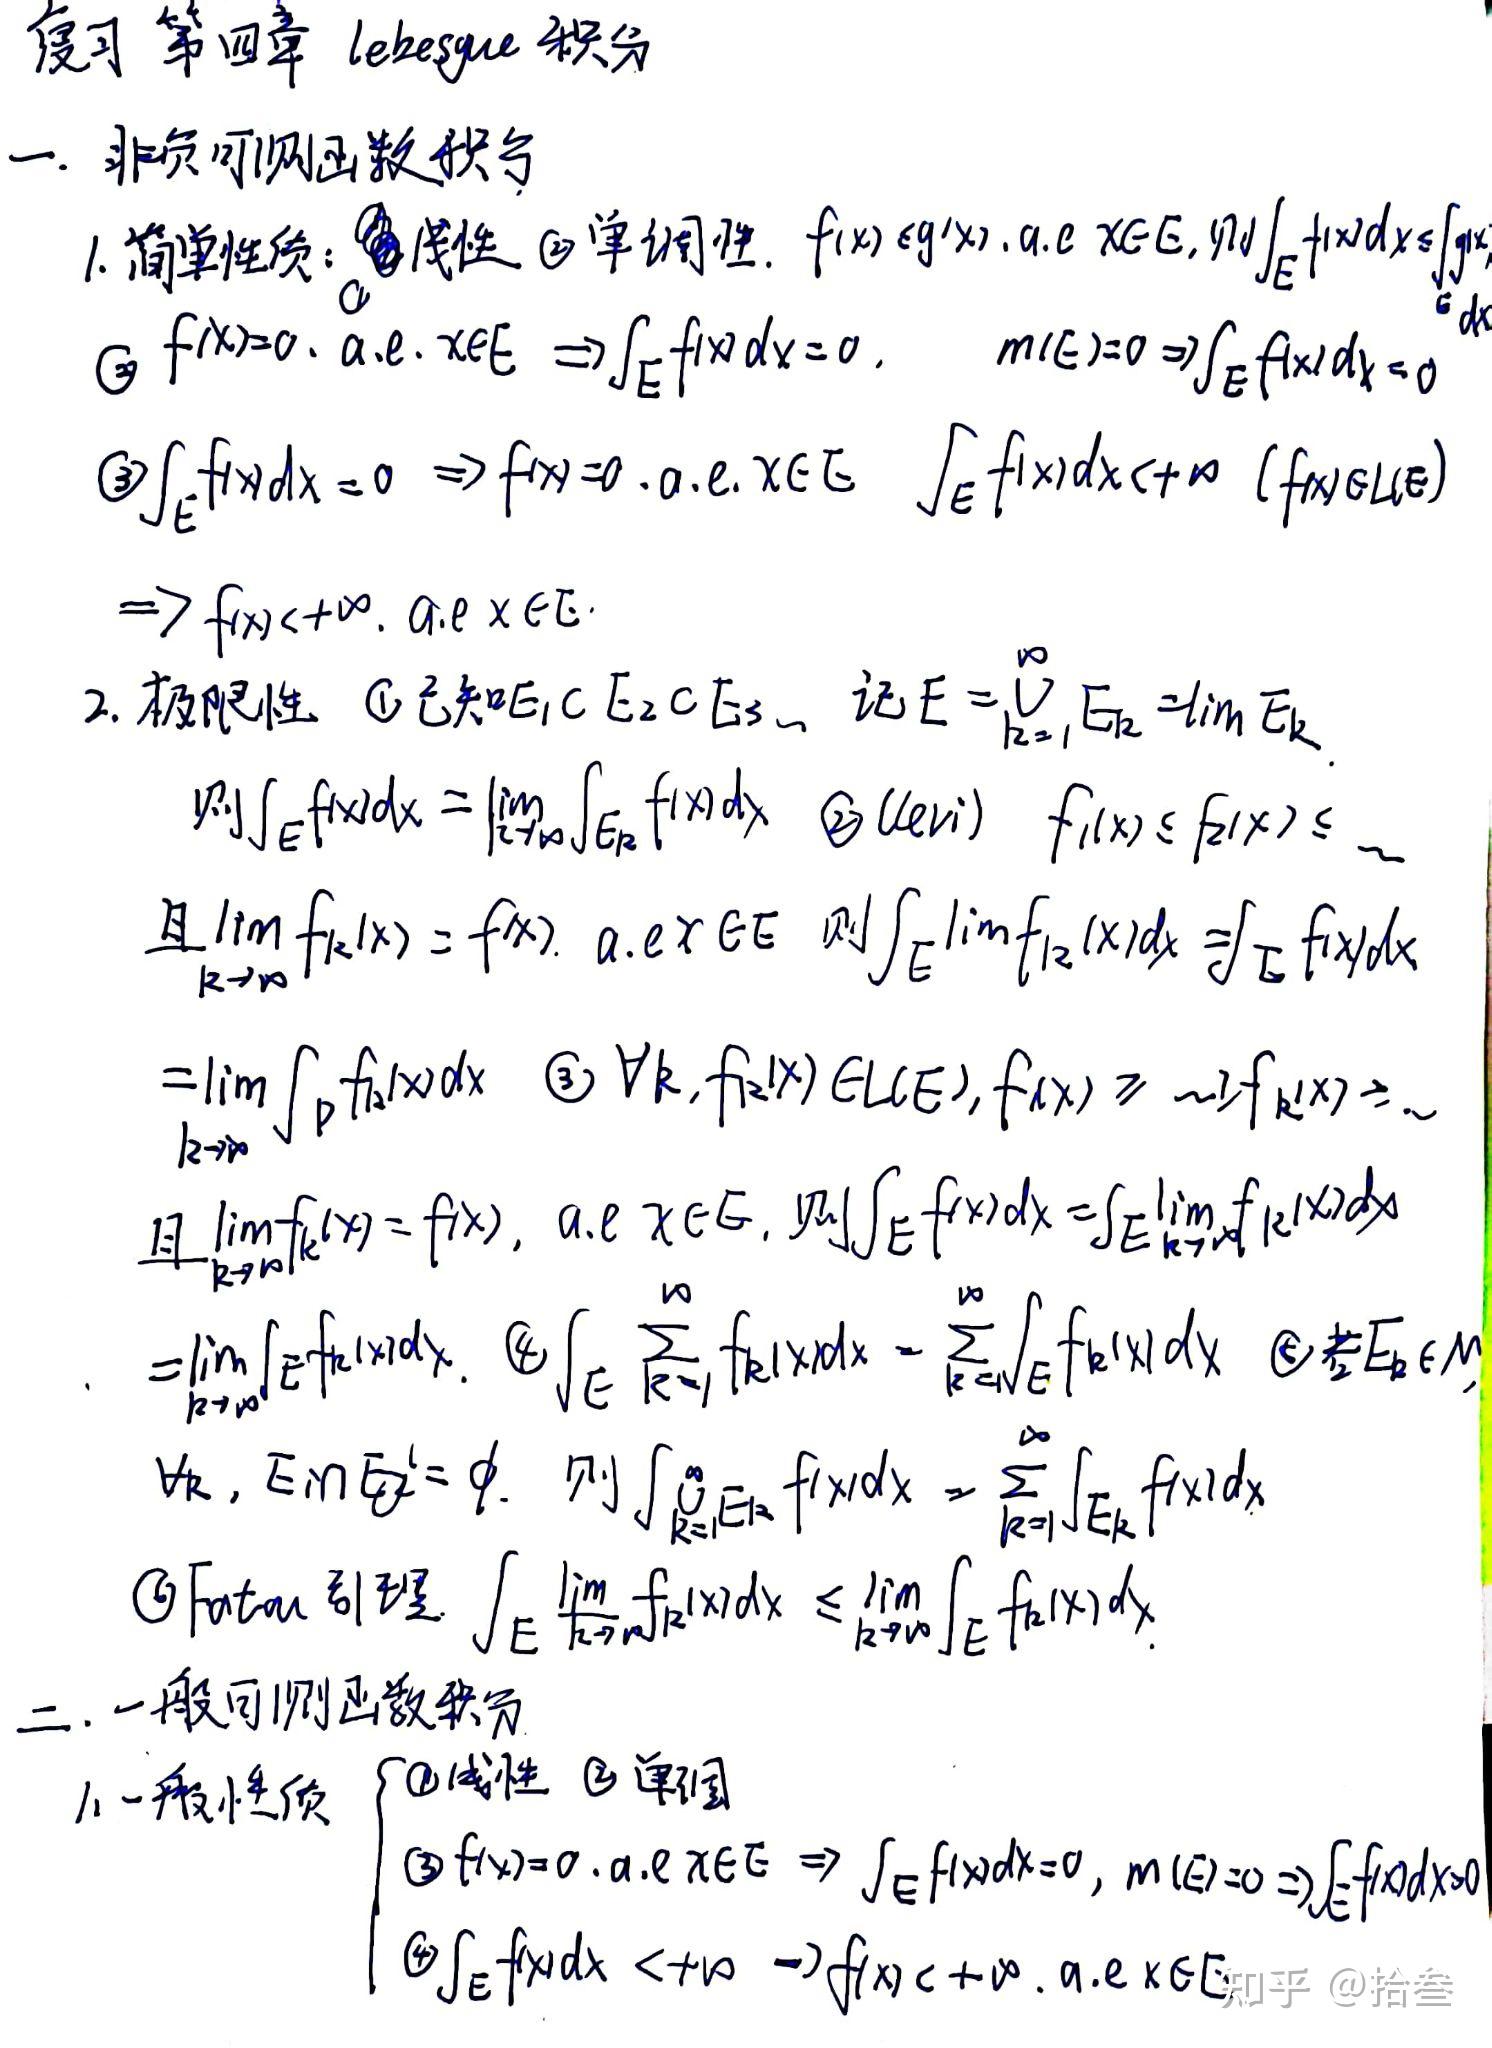 复习 第四章 lebesgue 积分
一. 非负可测函数积分
1. 简单性质: ① 线性 ② 单调性. f(x)≤g(x). a.e x∈E, 则∫_E f(x)dx≤∫_E g(x)dx
② f(x)=0. a.e. x∈E ⇒ ∫_E f(x)dx=0. m(E)=0 ⇒ ∫_E f(x)dx=0
③ ∫_E f(x)dx=0 ⇒ f(x)=0. a.e. x∈E ∫_E f(x)dx<+∞ (f(x)∈L(E))
⇒ f(x)<+∞. a.e x∈E.
2. 极限性 ① 已知E₁⊂E₂⊂E₃~ 记E=⋃_{k=1}^∞ E_k=lim E_k.
则∫_E f(x)dx=lim_{k→∞}∫_{E_k} f(x)dx ② (levi) f₁(x)≤f₂(x)≤~
且lim_{k→∞} f_k(x)=f(x). a.e x∈E 则∫_E lim f_k(x)dx=∫_E f(x)dx
=lim_{k→∞}∫_D f_k(x)dx ③ ∀k, f_k(x)∈L(E), f₁(x)≥~≥f_k(x)≥~
且lim_{k→∞} f_k(x)=f(x), a.e x∈E. 则∫_E f(x)dx=∫_E lim_{k→∞} f_k(x)dx
=lim_{k→∞}∫_E f_k(x)dx. ④ ∫_E ∑_{k=1}^∞ f_k(x)dx=∑_{k=1}^∞∫_E f_k(x)dx ⑤ 若E_k∈M,
∀k, E_i∩E_j=∅. 则∫_{⋃_{k=1}^∞ E_k} f(x)dx=∑_{k=1}^∞∫_{E_k} f(x)dx
⑥ Fatou 引理. ∫_E \underline{lim}_{k→∞} f_k(x)dx≤lim_{k→∞}∫_E f_k(x)dx.
二. 一般可测函数积分
1. 一般性质 { ① 线性 ② 单调
③ f(x)=0. a.e x∈E ⇒ ∫_E f(x)dx=0, m(E)=0 ⇒ ∫_E f(x)dx=0
④ ∫_E f(x)dx<+∞ → f(x)<+∞. a.e x∈E.
知乎 @拾叁